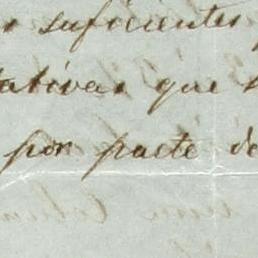 suficientes
tativas que
por parte de